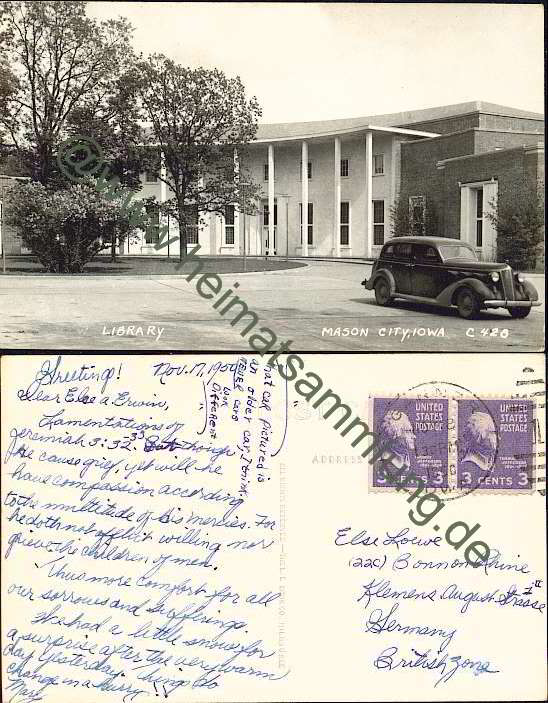 LIBRARY MASON CITY, IOWA C 428
@ www.heimatsammlung.de
Greeting! Nov. 17, 1950
Dear Else a Erwin,
Lamentations of
Jeremiah 3:32.33 But though
He cause grief, yet will he
have compassion according
to the multitude of his mercies. For
he doth not afflict willing nor
grieve the children of men.
Thus more comfort for all
our sorrows and sufferings.
We had a little snow for
a surprise after the very warm
day yesterday. Things do
change in a hurry!!
Mary
That car pictured is
an older car, I think.
NEWER cars
look
Different
ADDRESS
UNITED
STATES
POSTAGE
3 CENTS 3
UNITED
STATES
POSTAGE
3 CENTS 3
Else Loewe
(22c) Bonn on Rhine
Klemens August Strasse
Germany
British Zone